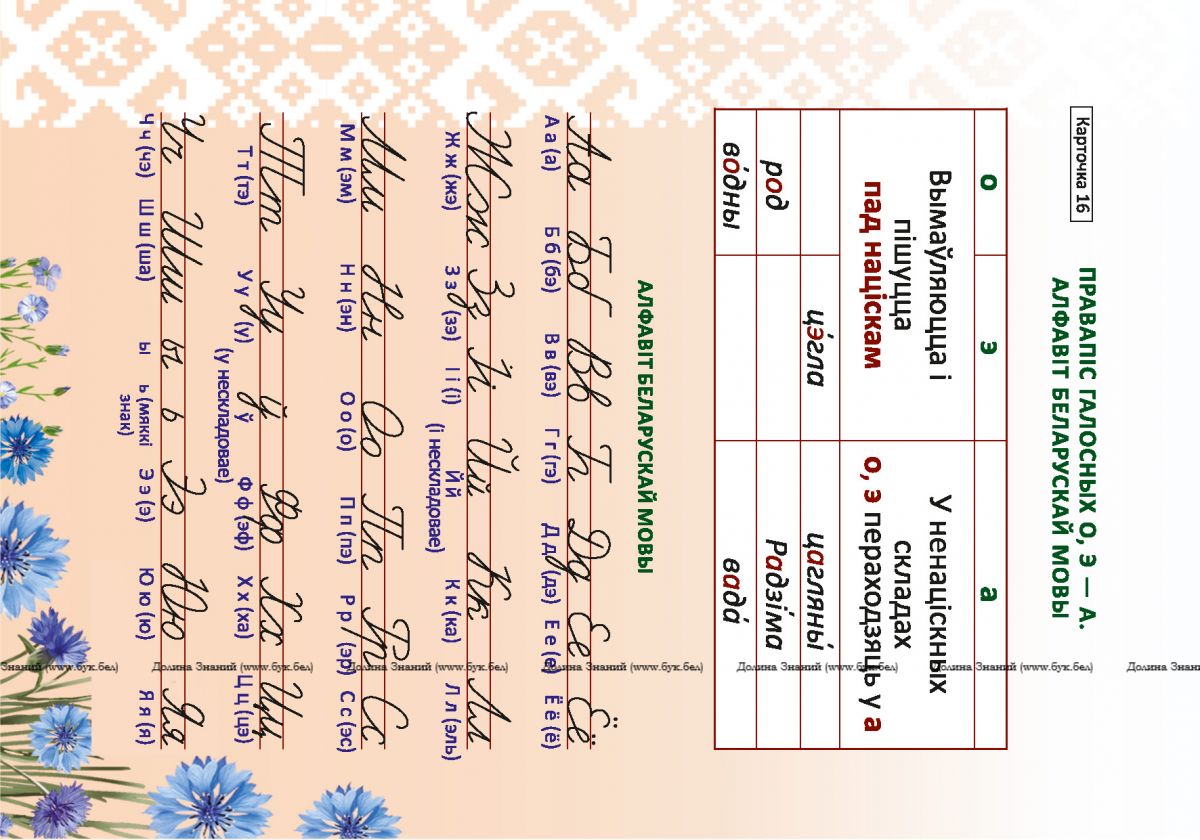 Карточка 16
ПРАВАПІС ГАЛОСНЫХ О, Э — А.
АЛФАВІТ БЕЛАРУСКАЙ МОВЫ
о э а
Вымаўляюцца і
пішуцца
пад націскам
У ненаціскных
складах
о, э пераходзяць у а
цэ́гла цагляны́
род Радзі́ма
во́дны вада́
АЛФАВІТ БЕЛАРУСКАЙ МОВЫ
Аа Бб Вв Гг Дд Ее Ёё
А а (а) Б б (бэ) В в (вэ) Г г (гэ) Д д (дэ) Е е (е) Ё ё (ё)
Жж Зз Іі Йй Кк Лл
Ж ж (жэ) З з (зэ) І і (і) Й й К к (ка) Л л (эль)
(і нескладовае)
Мм Нн Оо Пп Рр Сс
М м (эм) Н н (эн) О о (о) П п (пэ) Р р (эр) С с (эс)
Тт Уу ў Фф Хх Цц
Т т (тэ) У у (у) ў Ф ф (эф) Х х (ха) Ц ц (цэ)
(у нескладовае)
Чч Шш ы ь Ээ Юю Яя
Ч ч (чэ) Ш ш (ша) ы ь (мяккі Э э (э) Ю ю (ю) Я я (я)
знак)
Знаний (www.бук.бел) Долина Знаний (www.бук.бел) Долина Знаний (www.бук.бел) Долина Знаний (www.бук.бел) Долина Знаний (www.бук.бел) Долина Знаний (www.бук.бел) Долина Знани